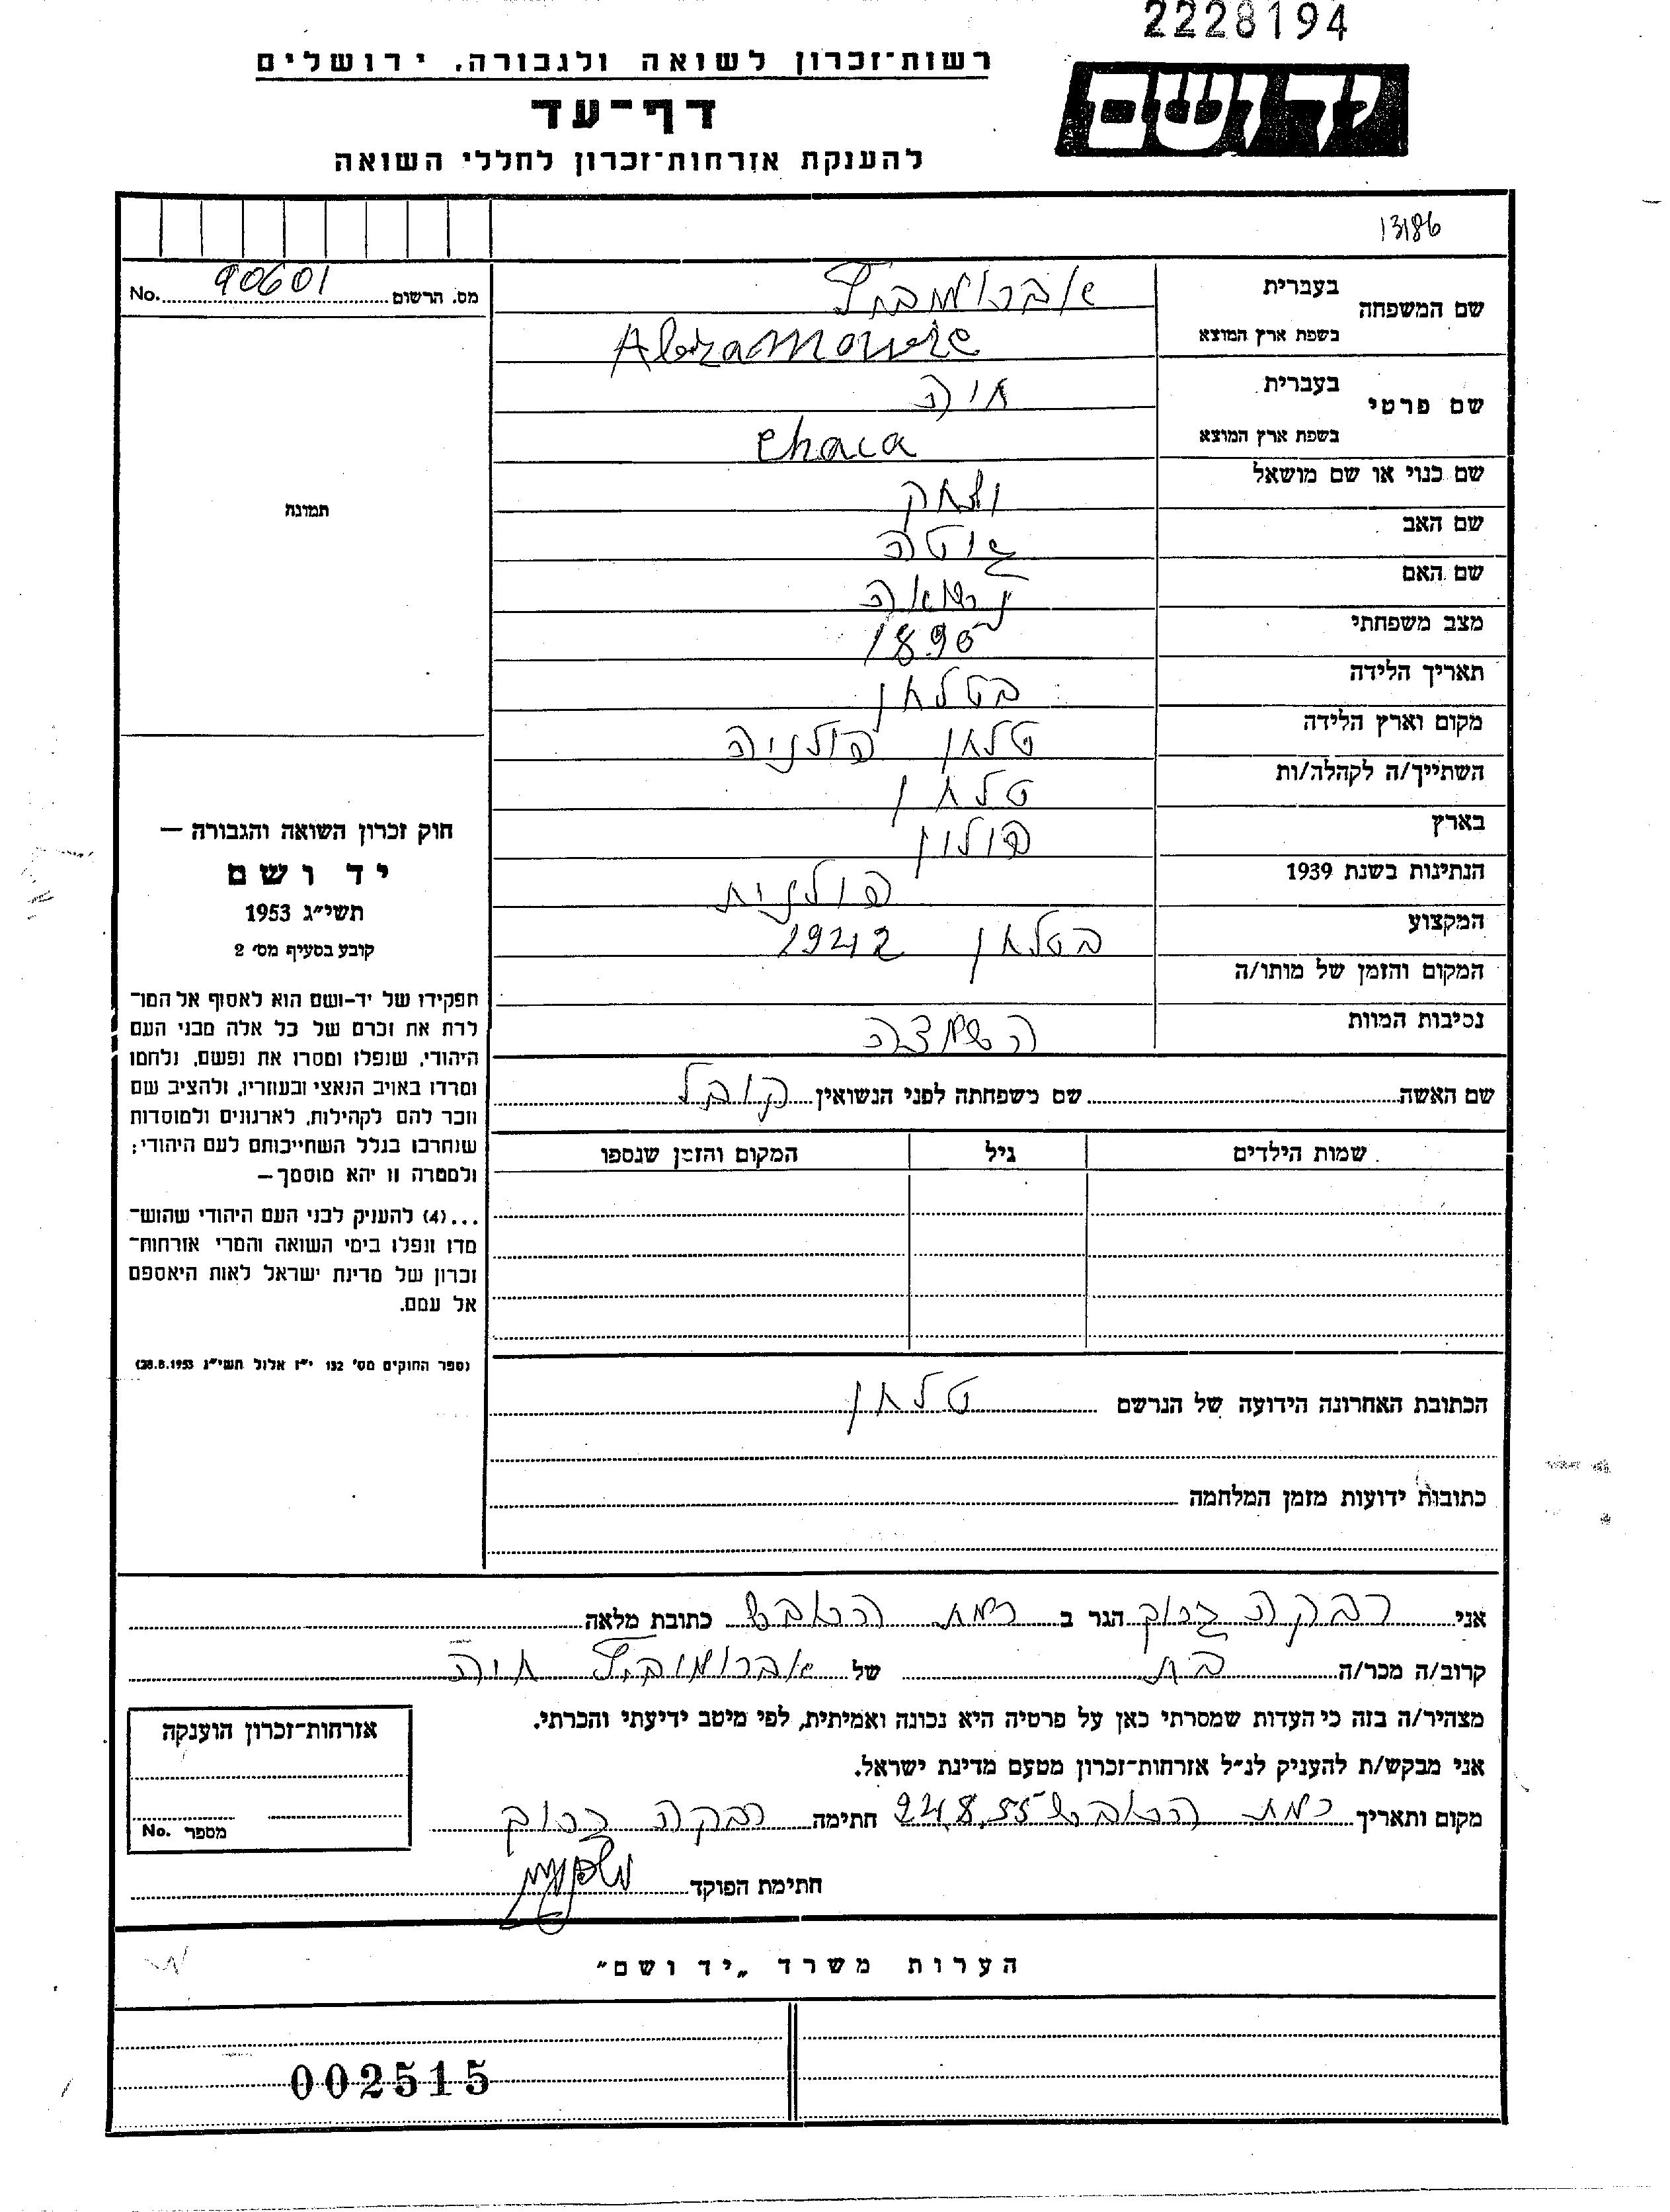 2228194
רשות־זכרון לשואה ולגבורה, ירושלים
יד ושם
דף־עד
להענקת אזרחות־זכרון לחללי השואה
13186
מס. הרשום 90601 No.
שם המשפחה
בעברית אברמוביץ
בשפת ארץ המוצא Abramovic
שם פרטי
בעברית חיה
בשפת ארץ המוצא Chaca
שם כנוי או שם מושאל
יצחק
שם האב
גיטה
שם האם
נשואה
מצב משפחתי
1890
תאריך הלידה
בטלחן
מקום וארץ הלידה
טלחן פולניה
השתייך/ה לקהלה/ות
טלחן
בארץ
פולין
הנתינות בשנת 1939
פולנית
המקצוע
בטלחן 1942
המקום והזמן של מותו/ה
נסיבות המוות
השמדה
שם האשה שם משפחתה לפני הנשואין קובל
שמות הילדים גיל המקום והזמן שנספו
הכתובת האחרונה הידועה של הנרשם טלחן
כתובות ידועות מזמן המלחמה
תמונה
חוק זכרון השואה והגבורה —
יד ושם
תשי״ג 1953
קובע בסעיף מס׳ 2
תפקידו של יד-ושם הוא לאסוף אל המו־
לדת את זכרם של כל אלה מבני העם
היהודי, שנפלו ומסרו את נפשם, נלחמו
ומרדו באויב הנאצי ובעוזריו, ולהציב שם
וזכר להם לקהילות, לארגונים ולמוסדות
שנחרבו בגלל השתייכותם לעם היהודי;
ולמטרה זו יהא מוסמך—
...(4) להעניק לבני העם היהודי שהוש־
מדו ונפלו בימי השואה והמרי אזרחות־
זכרון של מדינת ישראל לאות היאספם
אל עמם.
(ספר החוקים מס׳ 132 י״ז אלול תשי״ג 28.8.1953)
אני רבקה ברוך הגר ב רמת הכובש כתובת מלאה
קרוב/ה מכר/ה בת של אברמוביץ חיה
מצהיר/ה בזה כי העדות שמסרתי כאן על פרטיה היא נכונה ואמיתית, לפי מיטב ידיעתי והכרתי.
אני מבקש/ת להעניק לנ״ל אזרחות־זכרון מטעם מדינת ישראל.
מקום ותאריך רמת הכובש 24.8.55 חתימה רבקה ברוך
חתימת הפוקד
אזרחות־זכרון הוענקה
מספר No.
הערות משרד „יד ושם״
002515